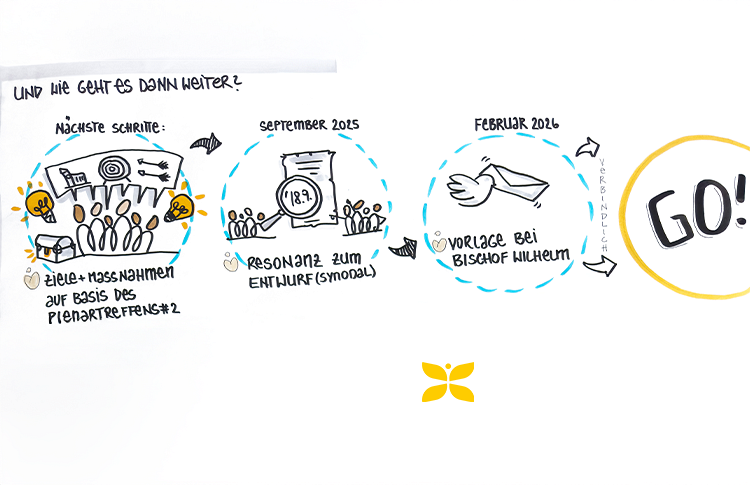 UND WIE GEHT ES DANN WEITER?
NÄCHSTE SCHRITTE:
ZIELE + MASSNAHMEN
AUF BASIS DES
PLENARTREFFENS #2
SEPTEMBER 2025
18.9.
RESONANZ ZUM
ENTWURF (SYNODAL)
FEBRUAR 2026
VORLAGE BEI
BISCHOF WILHELM
VERBINDLICH
GO!